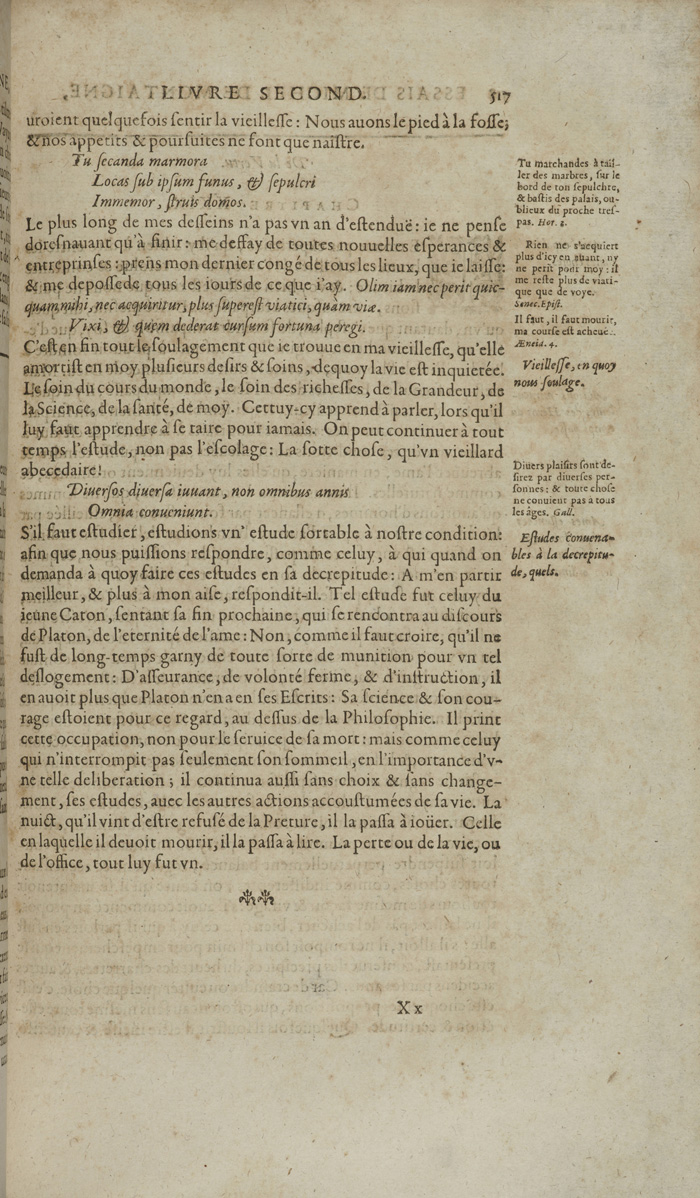 LIVRE SECOND. 517
uroient quelquefois ſentir la vieilleſſe: Nous auons le pied à la foſſe;
& nos appetits & pourſuites ne font que naiſtre.
Tu ſecanda marmora
Locas ſub ipſum funus, & ſepulcri
Immemor, ſtruis domos.
Le plus long de mes deſſeins n'a pas vn an d'eſtenduë: ie ne penſe
doreſnauant qu'à finir: me deffay de toutes nouuelles eſperances &
entreprinſes: prens mon dernier congé de tous les lieux, que ie laiſſe:
& me depoſſede tous les iours de ce que i'ay. Olim iam nec perit quic-
quam mihi, nec acquiritur, plus ſupereſt viatici, quàm viæ.
Vixi, & quem dederat curſum fortuna peregi.
C'eſt en fin tout le ſoulagement que ie trouue en ma vieilleſſe, qu'elle
amortiſt en moy pluſieurs deſirs & ſoins, dequoy la vie eſt inquietée.
Le ſoin du cours du monde, le ſoin des richeſſes, de la Grandeur, de
la Science, de la ſanté, de moy. Cettuy-cy apprend à parler, lors qu'il
luy faut apprendre à ſe taire pour iamais. On peut continuer à tout
temps l'eſtude, non pas l'eſcolage: La ſotte choſe, qu'vn vieillard
abecedaire!
Diuerſos diuerſa iuuant, non omnibus annis
Omnia conueniunt.
S'il faut eſtudier, eſtudions vn' eſtude ſortable à noſtre condition:
afin que nous puiſſions reſpondre, comme celuy, à qui quand on
demanda à quoy faire ces eſtudes en ſa decrepitude: A m'en partir
meilleur, & plus à mon aiſe, reſpondit-il. Tel eſtude fut celuy du
ieune Caton, ſentant ſa fin prochaine, qui ſe rencontra au diſcours
de Platon, de l'eternité de l'ame: Non, comme il faut croire, qu'il ne
fuſt de long-temps garny de toute ſorte de munition pour vn tel
deſlogement: D'aſſeurance, de volonté ferme, & d'inſtruction, il
en auoit plus que Platon n'en a en ſes Eſcrits: Sa ſcience & ſon cou-
rage eſtoient pour ce regard, au deſſus de la Philoſophie. Il print
cette occupation, non pour le ſeruice de ſa mort: mais comme celuy
qui n'interrompit pas ſeulement ſon ſommeil, en l'importance d'v-
ne telle deliberation; il continua auſſi ſans choix & ſans change-
ment, ſes eſtudes, auec les autres actions accouſtumées de ſa vie. La
nuict, qu'il vint d'eſtre refuſé de la Preture, il la paſſa à ioüer. Celle
en laquelle il deuoit mourir, il la paſſa à lire. La perte ou de la vie, ou
de l'office, tout luy fut vn.
Xx
Tu marchandes à tail-
ler des marbres, ſur le
bord de ton ſepulchre,
& baſtis des palais, ou-
blieux du proche treſ-
pas. Hor. 2.
Rien ne s'acquiert
plus d'icy en auant, ny
ne perit pour moy: il
me reſte plus de viati-
que que de voye.
Senec. Epiſt.
Il faut, il faut mourir,
ma courſe eſt acheuê.
Æneid. 4.
Vieilleſſe, en quoy
nous ſoulage.
Diuers plaiſirs ſont de-
ſirez par diuerſes per-
ſonnes: & toute choſe
ne conuient pas à tous
les âges. Gall.
Eſtudes conuena-
bles à la decrepitu-
de, quels.